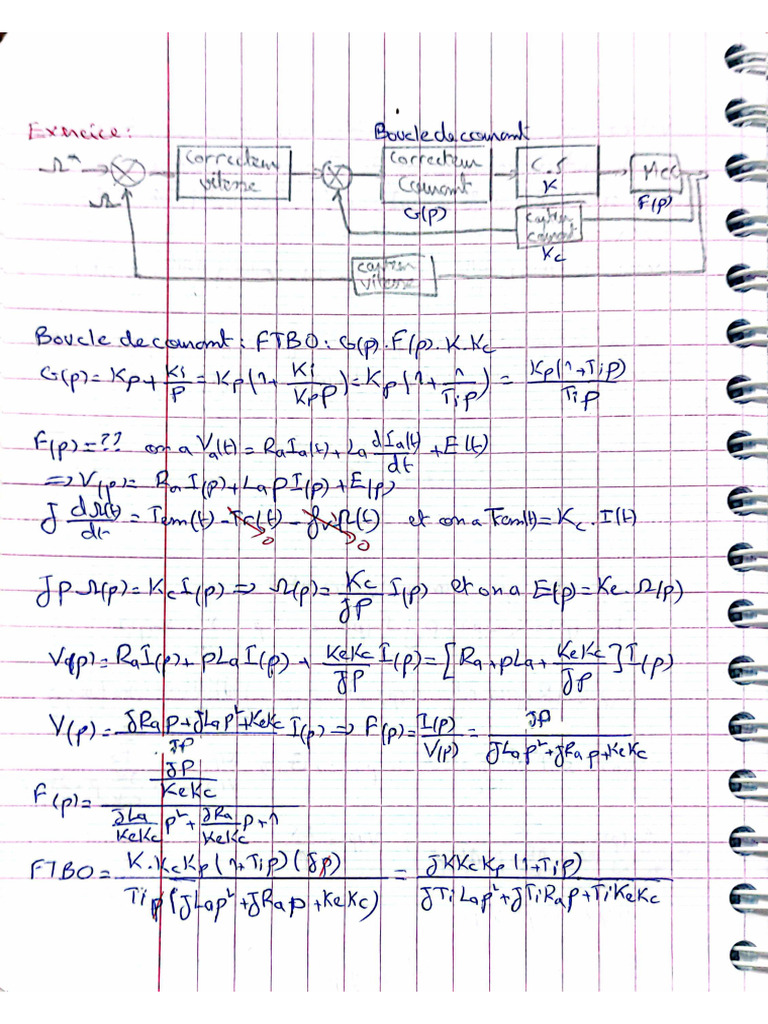 Boucle de courant
Exercice:
Ω* correcteur vitesse correcteur courant C.S K MCC
Ω G(p) capteur courant F(p)
Kc
capteur vitesse
Boucle de courant : FTBO : G(p).F(p).K.Kc
G(p) = Kp + Ki/p = Kp(1 + Ki/(Kp p)) = Kp(1 + 1/(Ti p)) = Kp(1+Ti p)/(Ti p)
F(p) = ?? on a Va(t) = Ra Ia(t) + La dIa(t)/dt + E(t)
⇒ V(p) = Ra I(p) + La p I(p) + E(p)
J dΩ(t)/dt = Tem(t) - Tc(t) - fv Ω(t) et on a Tem(t) = Kc . I(t)
0 0
Jp Ω(p) = Kc I(p) ⇒ Ω(p) = Kc/(Jp) I(p) et on a E(p) = Ke . Ω(p)
V(p) = Ra I(p) + p La I(p) + KeKc/(Jp) I(p) = [Ra + p La + KeKc/(Jp)] I(p)
V(p) = (J Ra p + J La p² + KeKc)/(Jp) I(p) ⇒ F(p) = I(p)/V(p) = Jp/(J La p² + J Ra p + KeKc)
F(p) = (Jp/(KeKc))/((J La/(KeKc)) p² + (J Ra/(KeKc)) p + 1)
FTBO = K.Kc Kp (1+Ti p)(Jp)/(Ti p (J La p² + J Ra p + KeKc)) = J K Kc Kp (1+Ti p)/(J Ti La p² + J Ti Ra p + Ti KeKc)